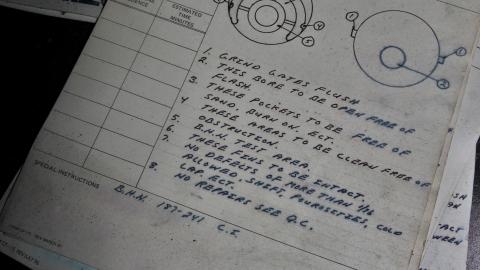 SEQUENCE
ESTIMATED
TIME
MINUTES
1. GRIND GATES FLUSH
2. THIS BORE TO BE OPEN FREE OF
FLASH.
3. THESE POCKETS TO BE FREE OF
SAND, BURN ON, ECT.
4 THESE AREAS TO BE CLEAN FREE OF
OBSTRUCTION.
5. B.H.N. TEST AREA.
6. THESE FINS TO BE INTACT.
7. NO DEFECTS OF MORE THAN 1/16
ALLOWED, SHIFT, POUROSITIES, COLD
LAP, ECT.
8. NO REPAIRS SEE Q.C.
SPECIAL INSTRUCTIONS
B.H.N. 187-241 C.I.